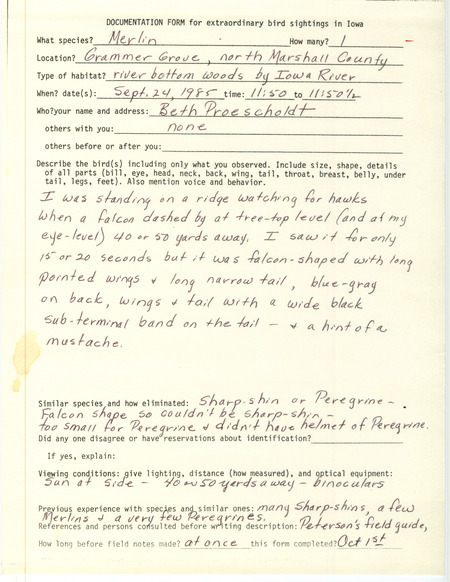 DOCUMENTATION FORM for extraordinary bird sightings in Iowa
What species? Merlin How many? 1
Location? Grammer Grove, north Marshall County
Type of habitat? river bottom woods by Iowa River
When? date(s): Sept. 24, 1985 time: 11:50 to 11:50½
Who? your name and address: Beth Proescholdt
others with you: none
others before or after you:
Describe the bird(s) including only what you observed. Include size, shape, details
of all parts (bill, eye, head, neck, back, wing, tail, throat, breast, belly, under
tail, legs, feet). Also mention voice and behavior.
I was standing on a ridge watching for hawks
when a falcon dashed by at tree-top level (and at my
eye-level) 40 or 50 yards away. I saw it for only
15 or 20 seconds but it was falcon-shaped with long
pointed wings & long narrow tail, blue-gray
on back, wings & tail with a wide black
sub-terminal band on the tail - & a hint of a
mustache.
Similar species and how eliminated: Sharp-shin or Peregrine -
Falcon shape so couldn't be sharp-shin -
too small for Peregrine & didn't have helmet of Peregrine.
Did any one disagree or have reservations about identification?
If yes, explain:
Viewing conditions: give lighting, distance (how measured), and optical equipment:
Sun at side - 40 or 50 yards away - binoculars
Previous experience with species and similar ones: many Sharp-shins, a few
Merlins & a very few Peregrines.
References and persons consulted before writing description: Peterson's field guide,
How long before field notes made? at once this form completed? Oct 1st